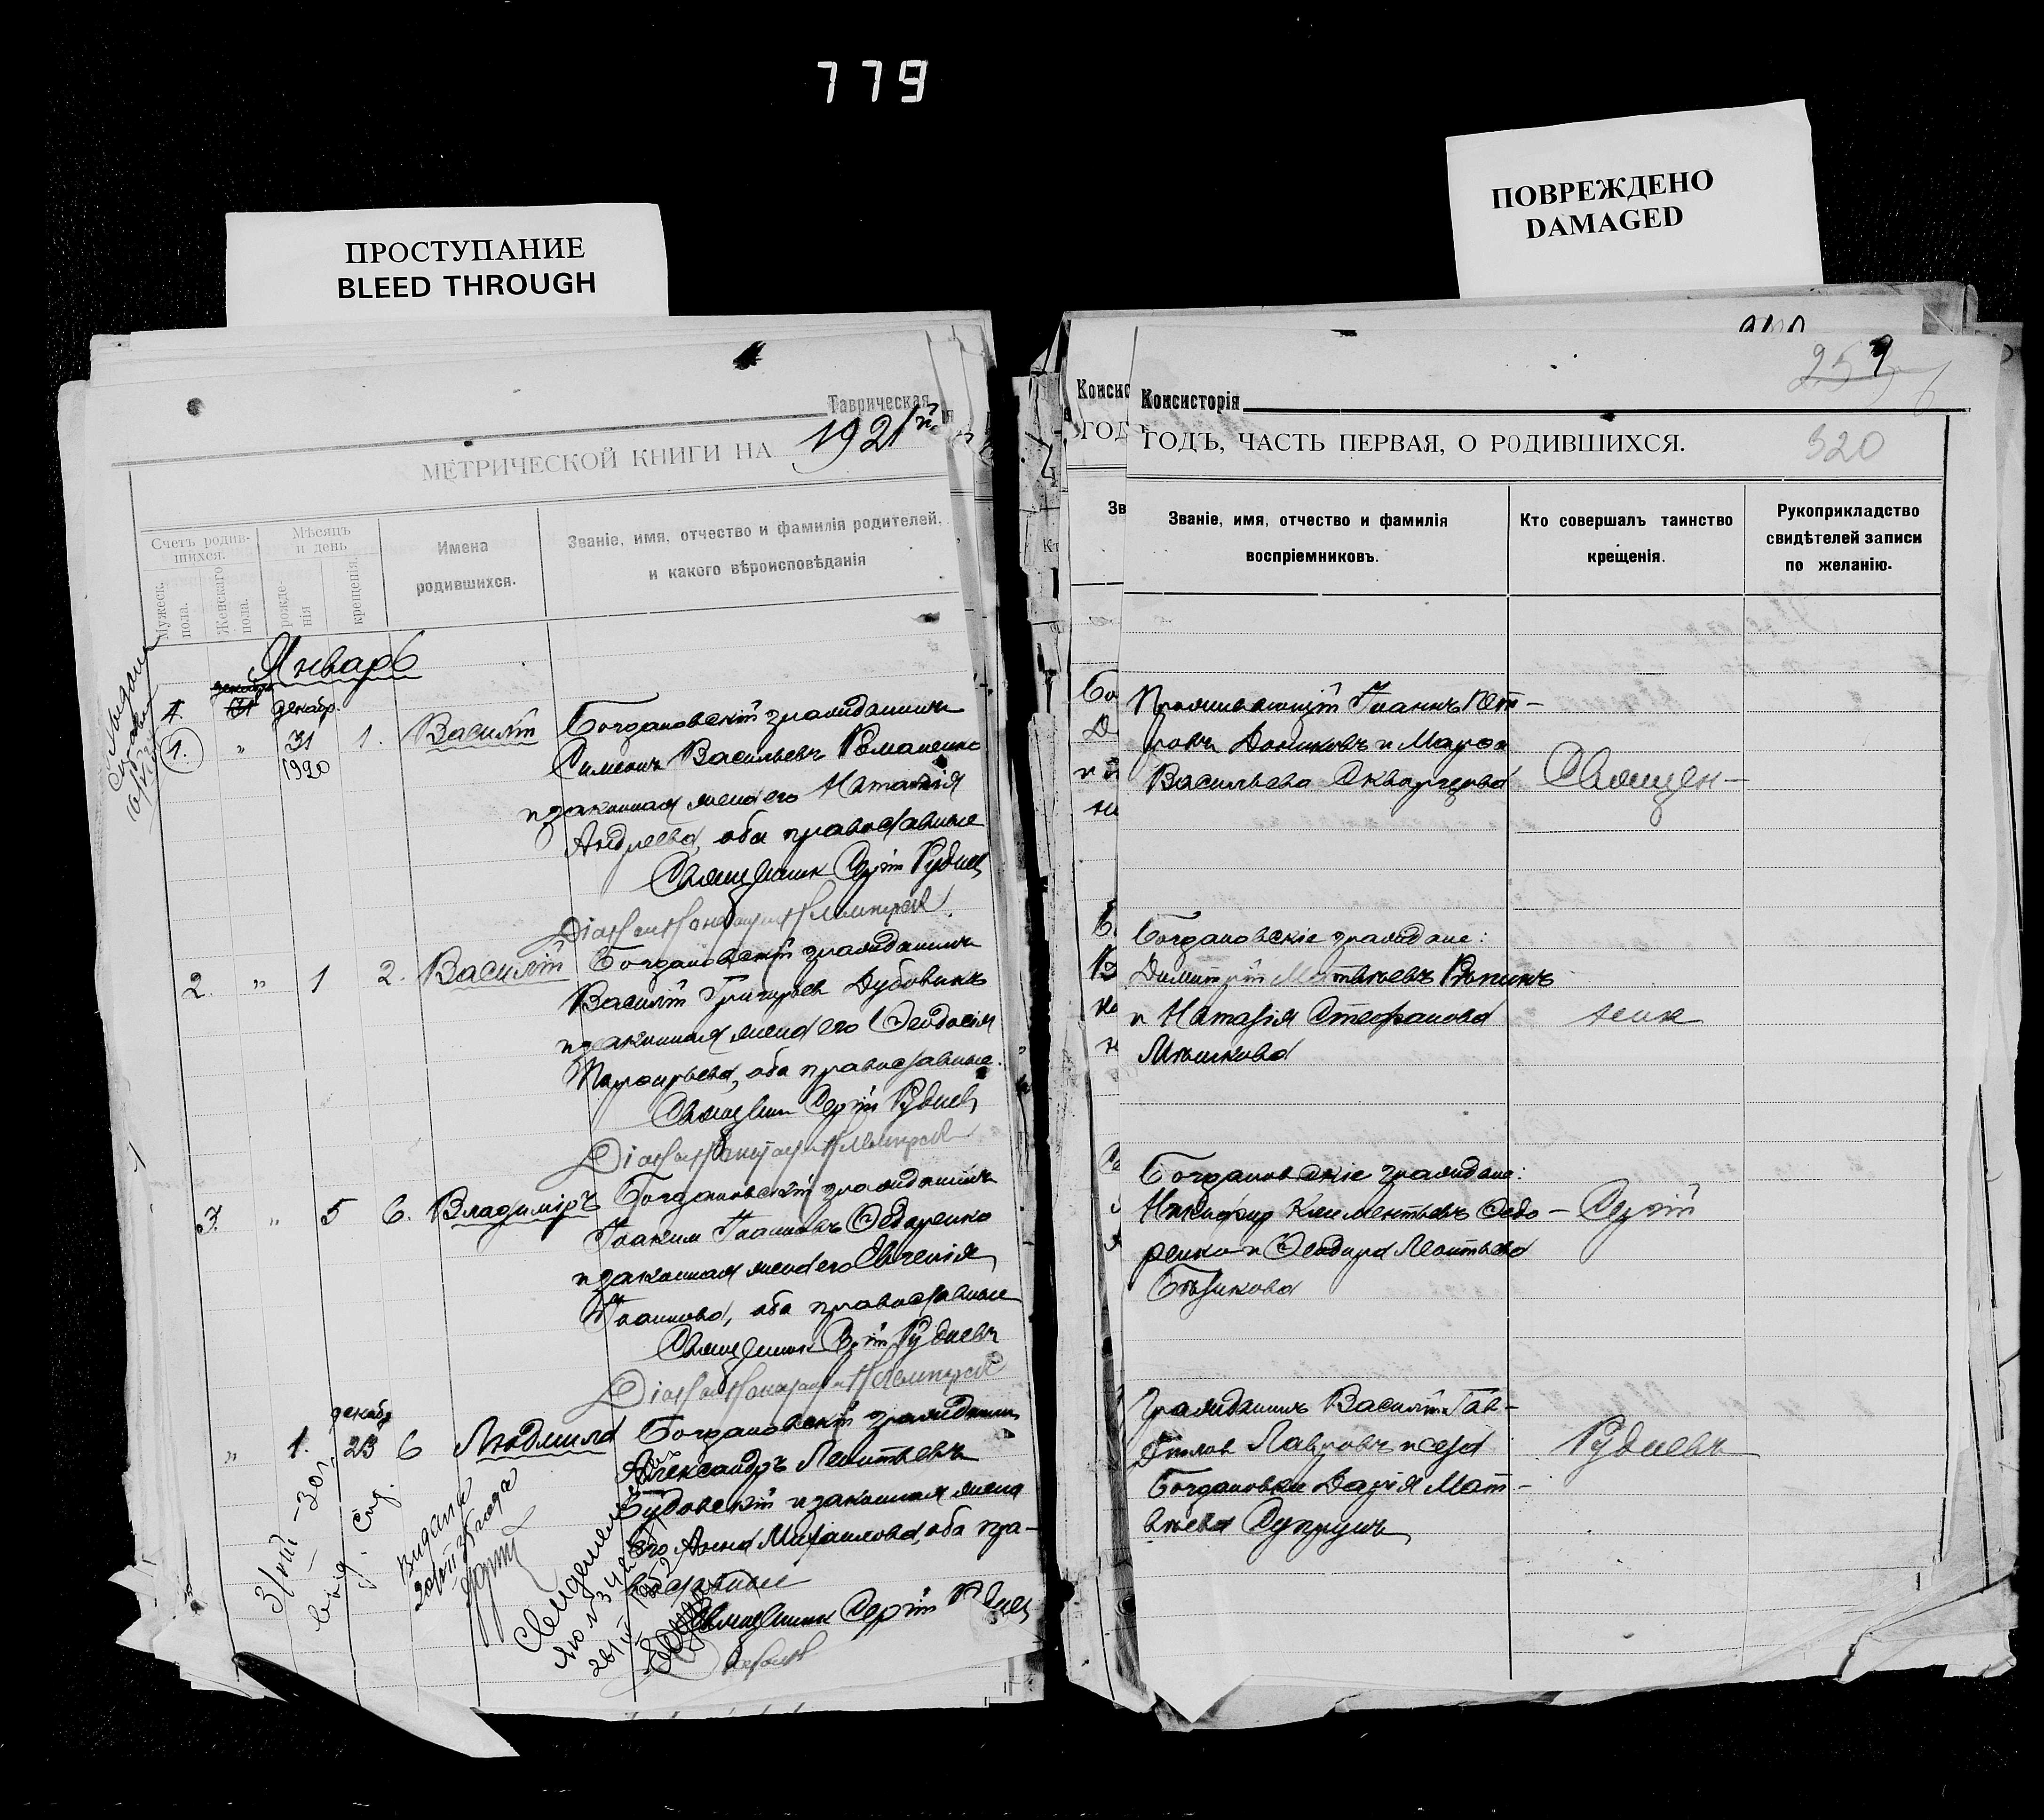 779
ПРОСТУПАНИЕ
BLEED THROUGH
ПОВРЕЖДЕНО
DAMAGED
Таврическая
МЕТРИЧЕСКОЙ КНИГИ НА 1921й
Счетъ родив-
шихся.
Мужеск.
пола.
Женскаго
пола.
Мѣсяцъ
и день
рожде-
нія
крещенія.
Имена
родившихся.
Званіе, имя, отчество и фамилія родителей,
и какого вѣроисповѣданія
Январь
декабр.
1. " 31 1. Василій
1920
Богдановскій гражданинъ
Симеонъ Васильевъ Романенко
и законная жена его Наталія
Андреева, оба православные
Священник Сергій Руднев
2. " 1 2. Василій
Богдановскій гражданинъ
Василій Григорьев Дубовикъ
и законная жена его Феодосія
Порфирьева, оба православные.
Священник Сергій Руднев
3. " 5 6. Владиміръ
Богдановскій гражданинъ
Іоаким Іоанновъ Федоренко
и законная жена его Евгенія
Іоаннова, оба православные
Священник Сергій Рудневъ
декабр
" 1. 23 6 Людмила
Богдановскій гражданин
Александръ Леонтьевъ
Будовскій и законная жена
его Анна Михаилова, оба пра-
вославные
Священник Сергій Руднев
Видана
Консисторія
259
6
ГОДЪ, ЧАСТЬ ПЕРВАЯ, О РОДИВШИХСЯ.
320
Званіе, имя, отчество и фамилія
воспріемниковъ.
Кто совершалъ таинство
крещенія.
Рукоприкладство
свидѣтелей записи
по желанію.
Проживающій Іоаннъ Пет-
ровъ Дониковъ и Марѳа
Васильева Скворцова
Священ-
Богдановскіе граждане:
Димитрій Матвѣевъ Рѣпинъ
и Наталія Стефанова
Мѣшкова
ник
Богдановскіе граждане:
Никифор Климентьевъ Федо-
ренко и Феодора Леонтьева
Бѣликова
Сергій
Гражданинъ Василій Гав-
риилов Лавровъ и села
Богдановки Дарія Мат-
вѣева Супрунъ
Рудневъ